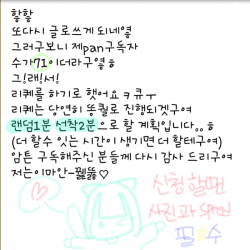 핳핳
또다시 글로쓰게 되네옇
그러구보니 제pan구독자
수가71이더라구옇ㅎ
그!래!서!
리퀘를 하기로 했어요ㅋ큐ㅜ
리퀘는 당연히 똥퀄로 진행되겟구여
랜덤1분 선착2분으로 할 계획입니다。。ㅎ
(더 할수 잇는 시간이 생기면 더 할테구여)
암튼 구독해주신 분들께 다시 감사 드리구여
저는이마안-뀋뚫♡
신청 할땐
사진과 speed
필수